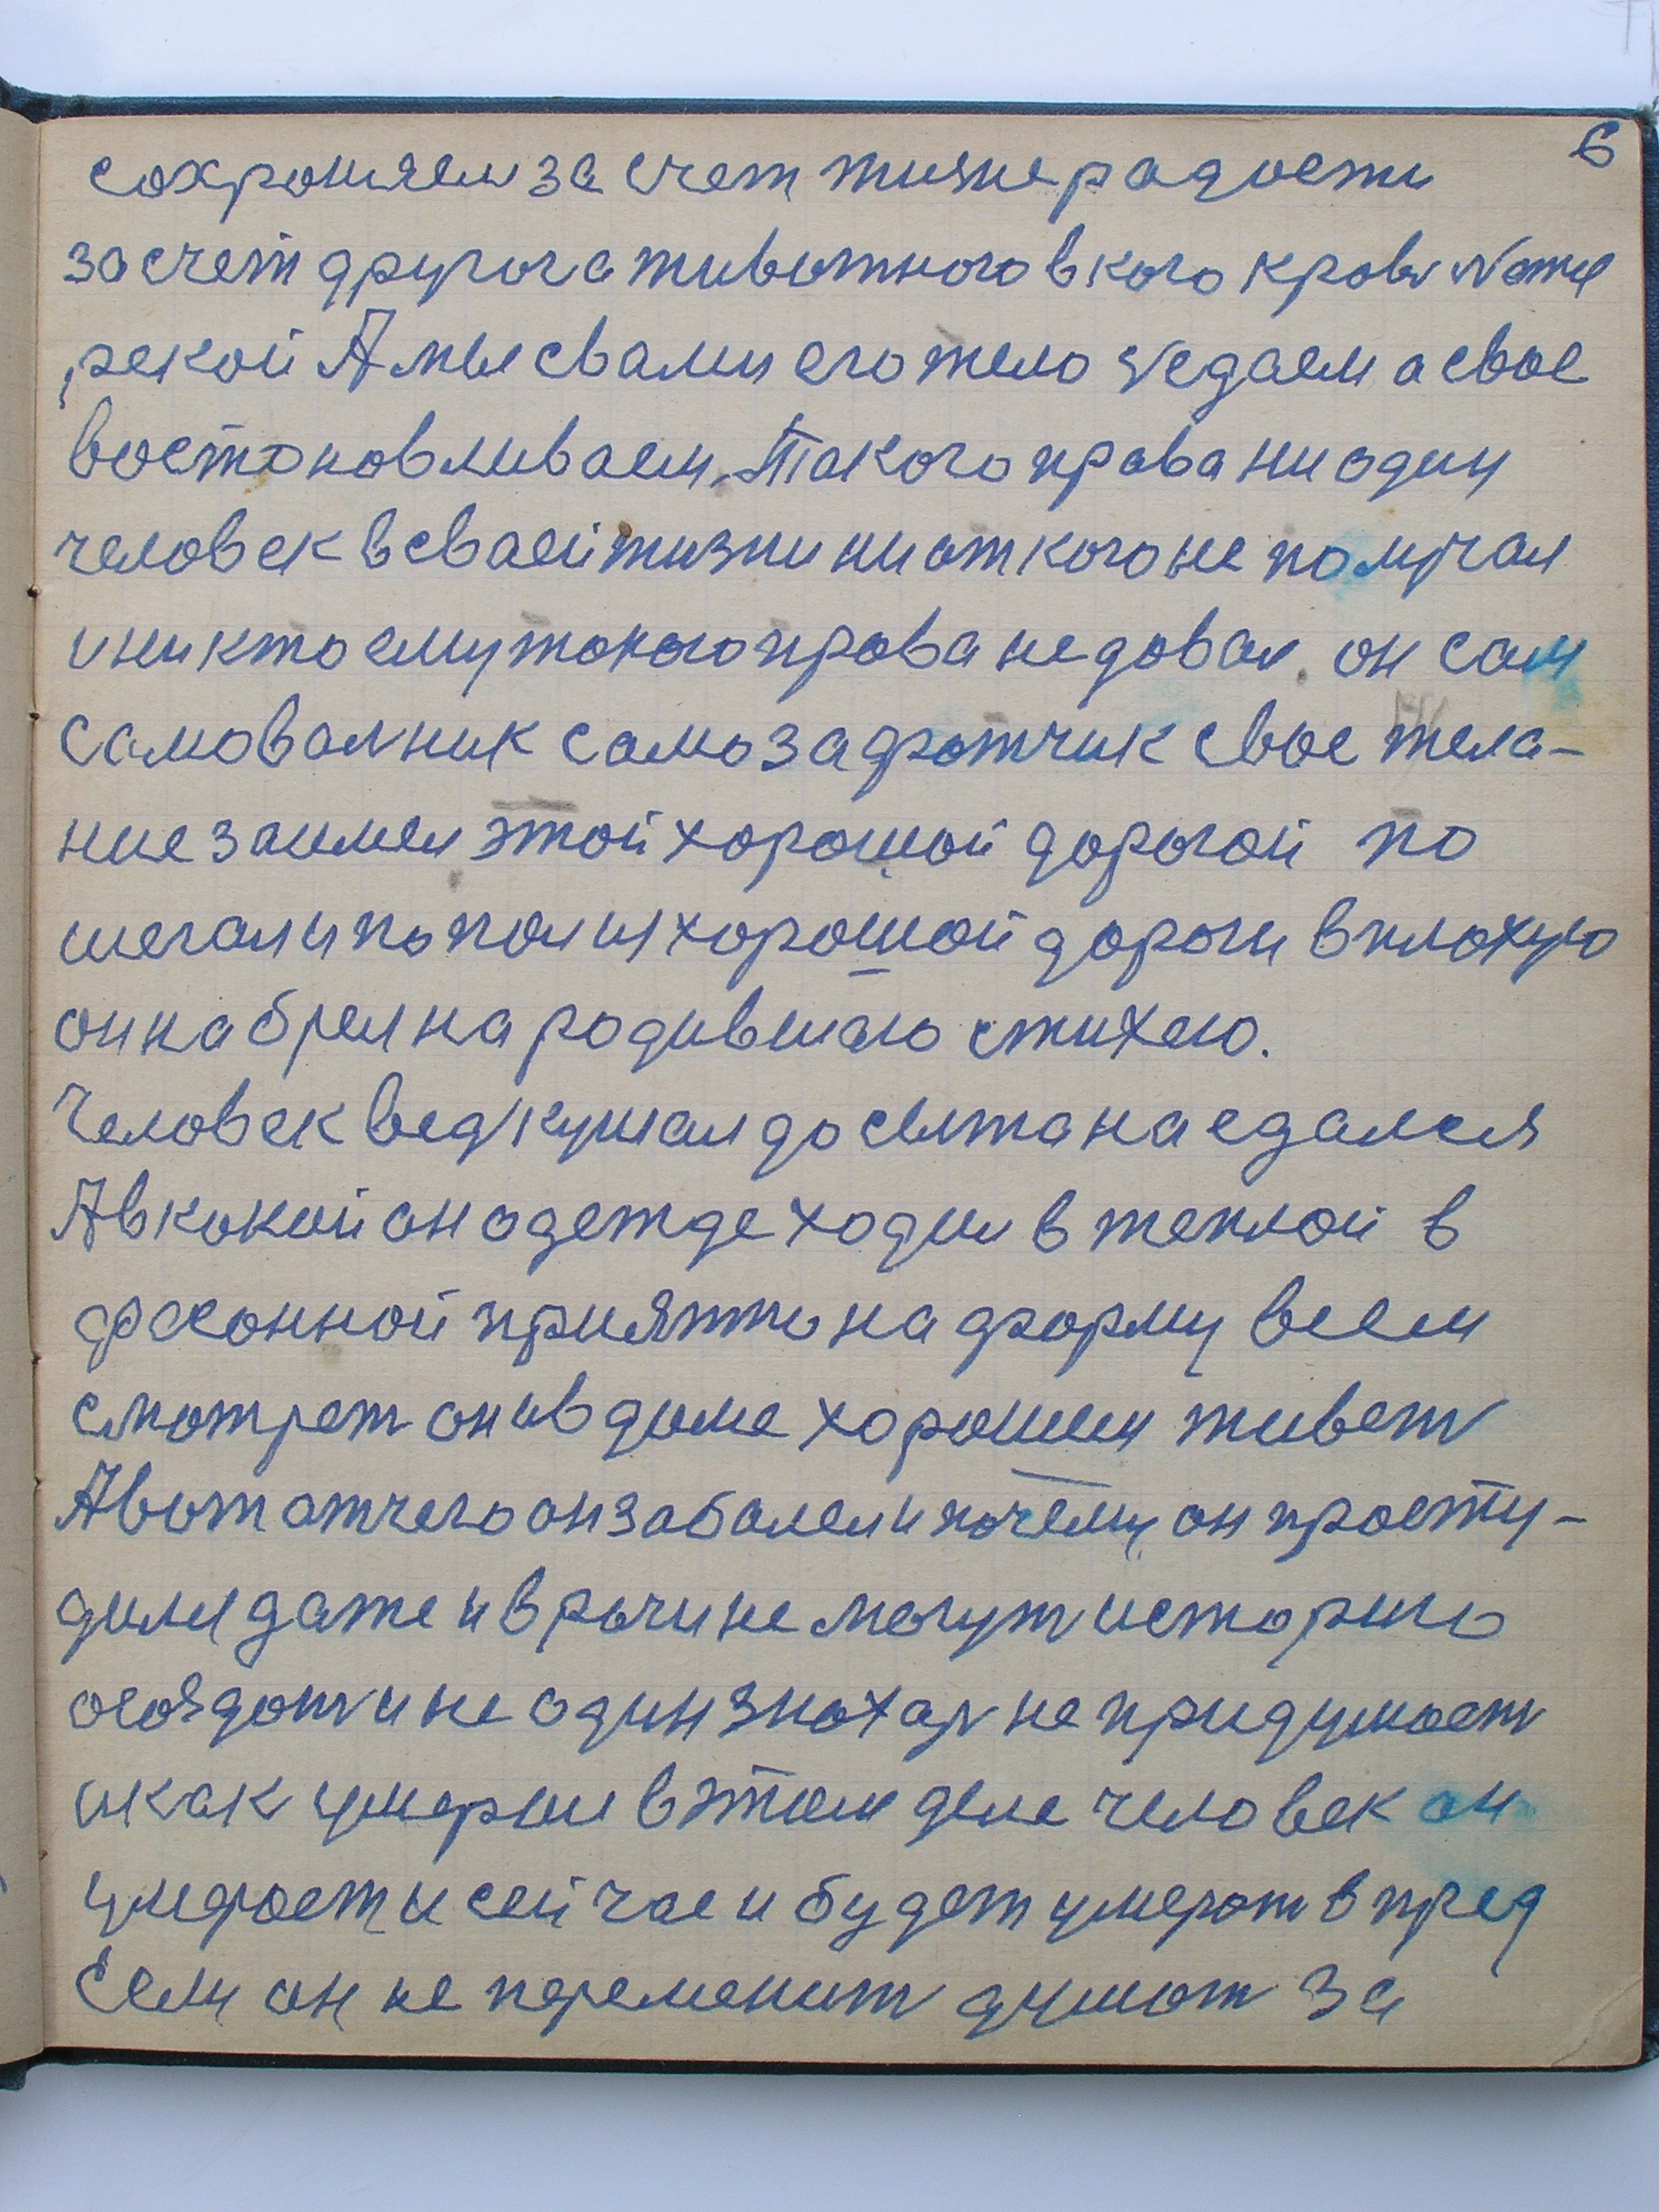 6
сохроняем за счет жизне радости
за счет другога животного в кого кровь
рекой А мы свами его тело сьедаем а свое
востоновливаем. Такого права ни один
человек в сваей жизни ни от кого не получал
и никто ему токого права не довал. он сам
самовольник само захфотчик свое жела-
ние заимел этой хорошой дорогой по
шегал и попол из хорошой дороги в плохую
он набрел на родившаю стихею.
Человек вед кушал до сыта наедался
А в кокой он одежде ходил в теплой в
фасонной приятно на форму всем
смотрет он и в доме хорошем живет
А вот отчего он заболел и почему он просту-
дился даже и врочи не могут историю
создот и не один знохар не придумоет
и как умерал в этом деле человек он
умероет и сейчас и будет умерот в пред
Если он не переменит думот за